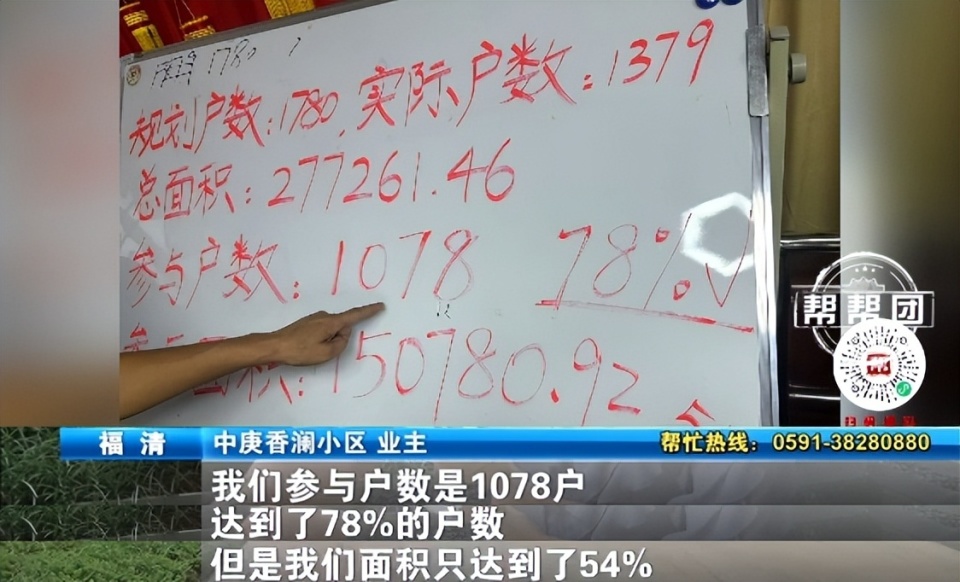 1780
规划户数:1780,实际户数:1379
总面积:277261.46
参与户数:1078 78%√
面积:150780.92
帮帮团
福清 中庚香澜小区 业主 帮忙热线:0591-38280880
我们参与户数是1078户
达到了78%的户数
但是我们面积只达到了54%